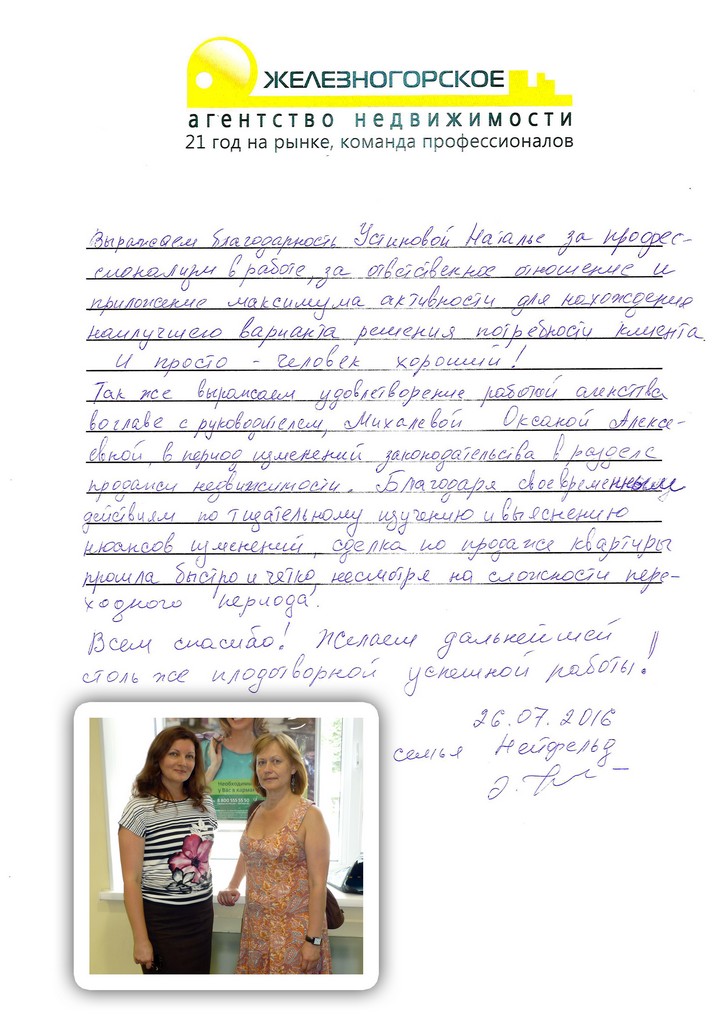 ЖЕЛЕЗНОГОРСКОЕ
агентство недвижимости
21 год на рынке, команда профессионалов
Выражаем благодарность Устиновой Наталье за профес-
сионализм в работе, за ответственное отношение и
приложение максимума активности для нахождения
наилучшего варианта решения потребности клиента.
И просто - человек хороший!
Так же выражаем удовлетворение работой агенства
во главе с руководителем, Михалевой Оксаной Алексе-
евной, в период изменений законодательства в разделе
продажи недвижимости. Благодаря своевременным
действиям по тщательному изучению и выяснению
нюансов изменений, сделка по продаже квартиры
прошла быстро и чётко, несмотря на сложности пере-
ходного периода.
Всем спасибо! Желаем дальнейшей
столь же плодотворной успешной работы!
26.07.2016
семья Нейфельд
Необходимы
у Вас к
8 800 555 55 50